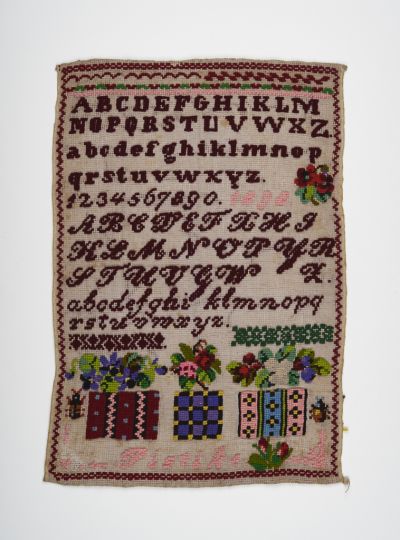 ABCDEFGHIKLM
NOPQRSTUVWXZ
abcdefghiklmnop
qrstuvwxyz.
1234567890.
ABCDEFGHI
KLMNOPQR
STUVWXZ.
abcdefghiklmnopq
rstuvwxyz.